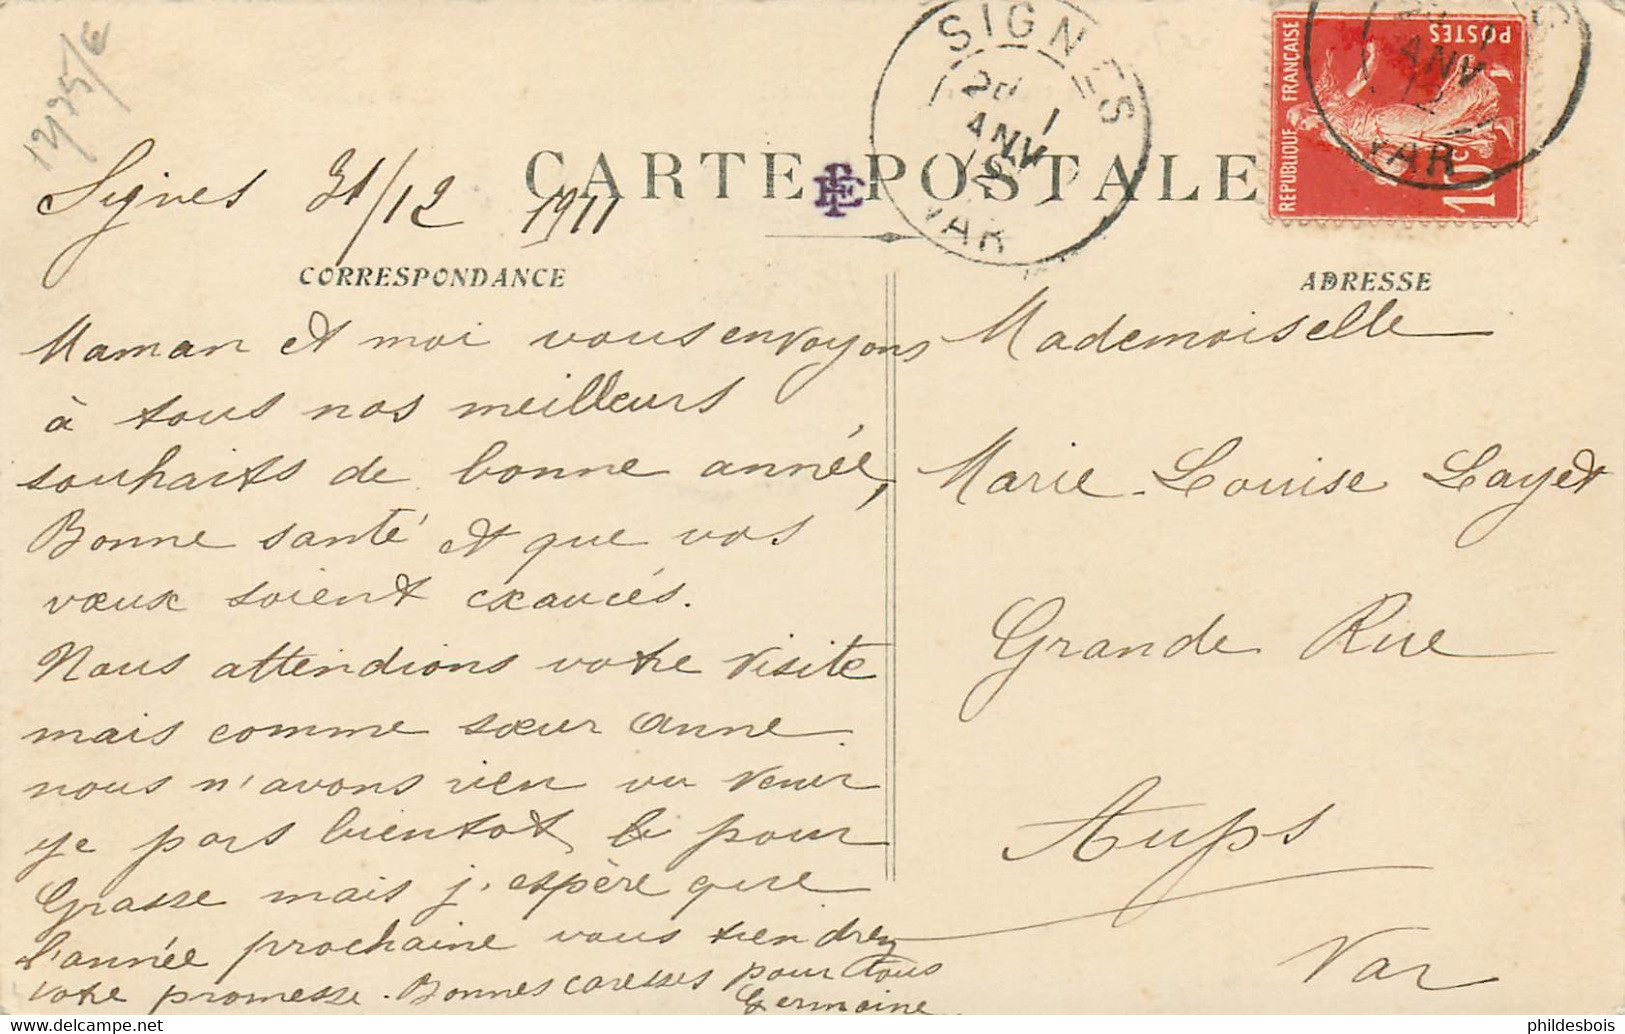 Signes 31/12 1911
CARTE POSTALE
CORRESPONDANCE
Maman et moi vous envoyons
à tous nos meilleurs
souhaits de bonne année,
Bonne santé et que vos
vœux soient exaucés.
Nous attendions votre visite
mais comme sœur Anne
nous n'avons rien vu venir
je pars bientôt pour
Grasse mais j'espère que
l'année prochaine vous tiendrez
votre promesse. Bonnes caresses pour tous
Germaine
SIGNES
VAR
REPUBLIQUE FRANÇAISE
POSTES
10c
VAR
ADRESSE
Mademoiselle
Marie-Louise Layet
Grande Rue
Aups
Var
phildesbois